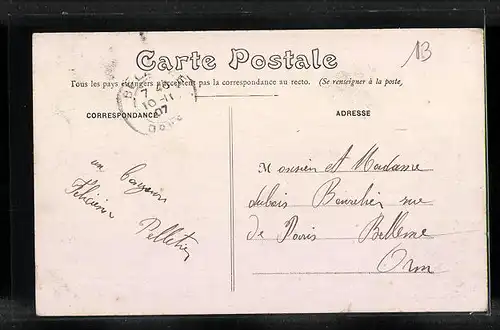 13
Carte Postale
Tous les pays étrangers n'acceptent pas la correspondance au recto. (Se renseigner à la poste)
7
10-11
07
CORRESPONDANCE
ADRESSE
un
Félicien
Pelletier
Monsieur et Madame
dubois Bourrelier rue
de Paris Bellème
Orne